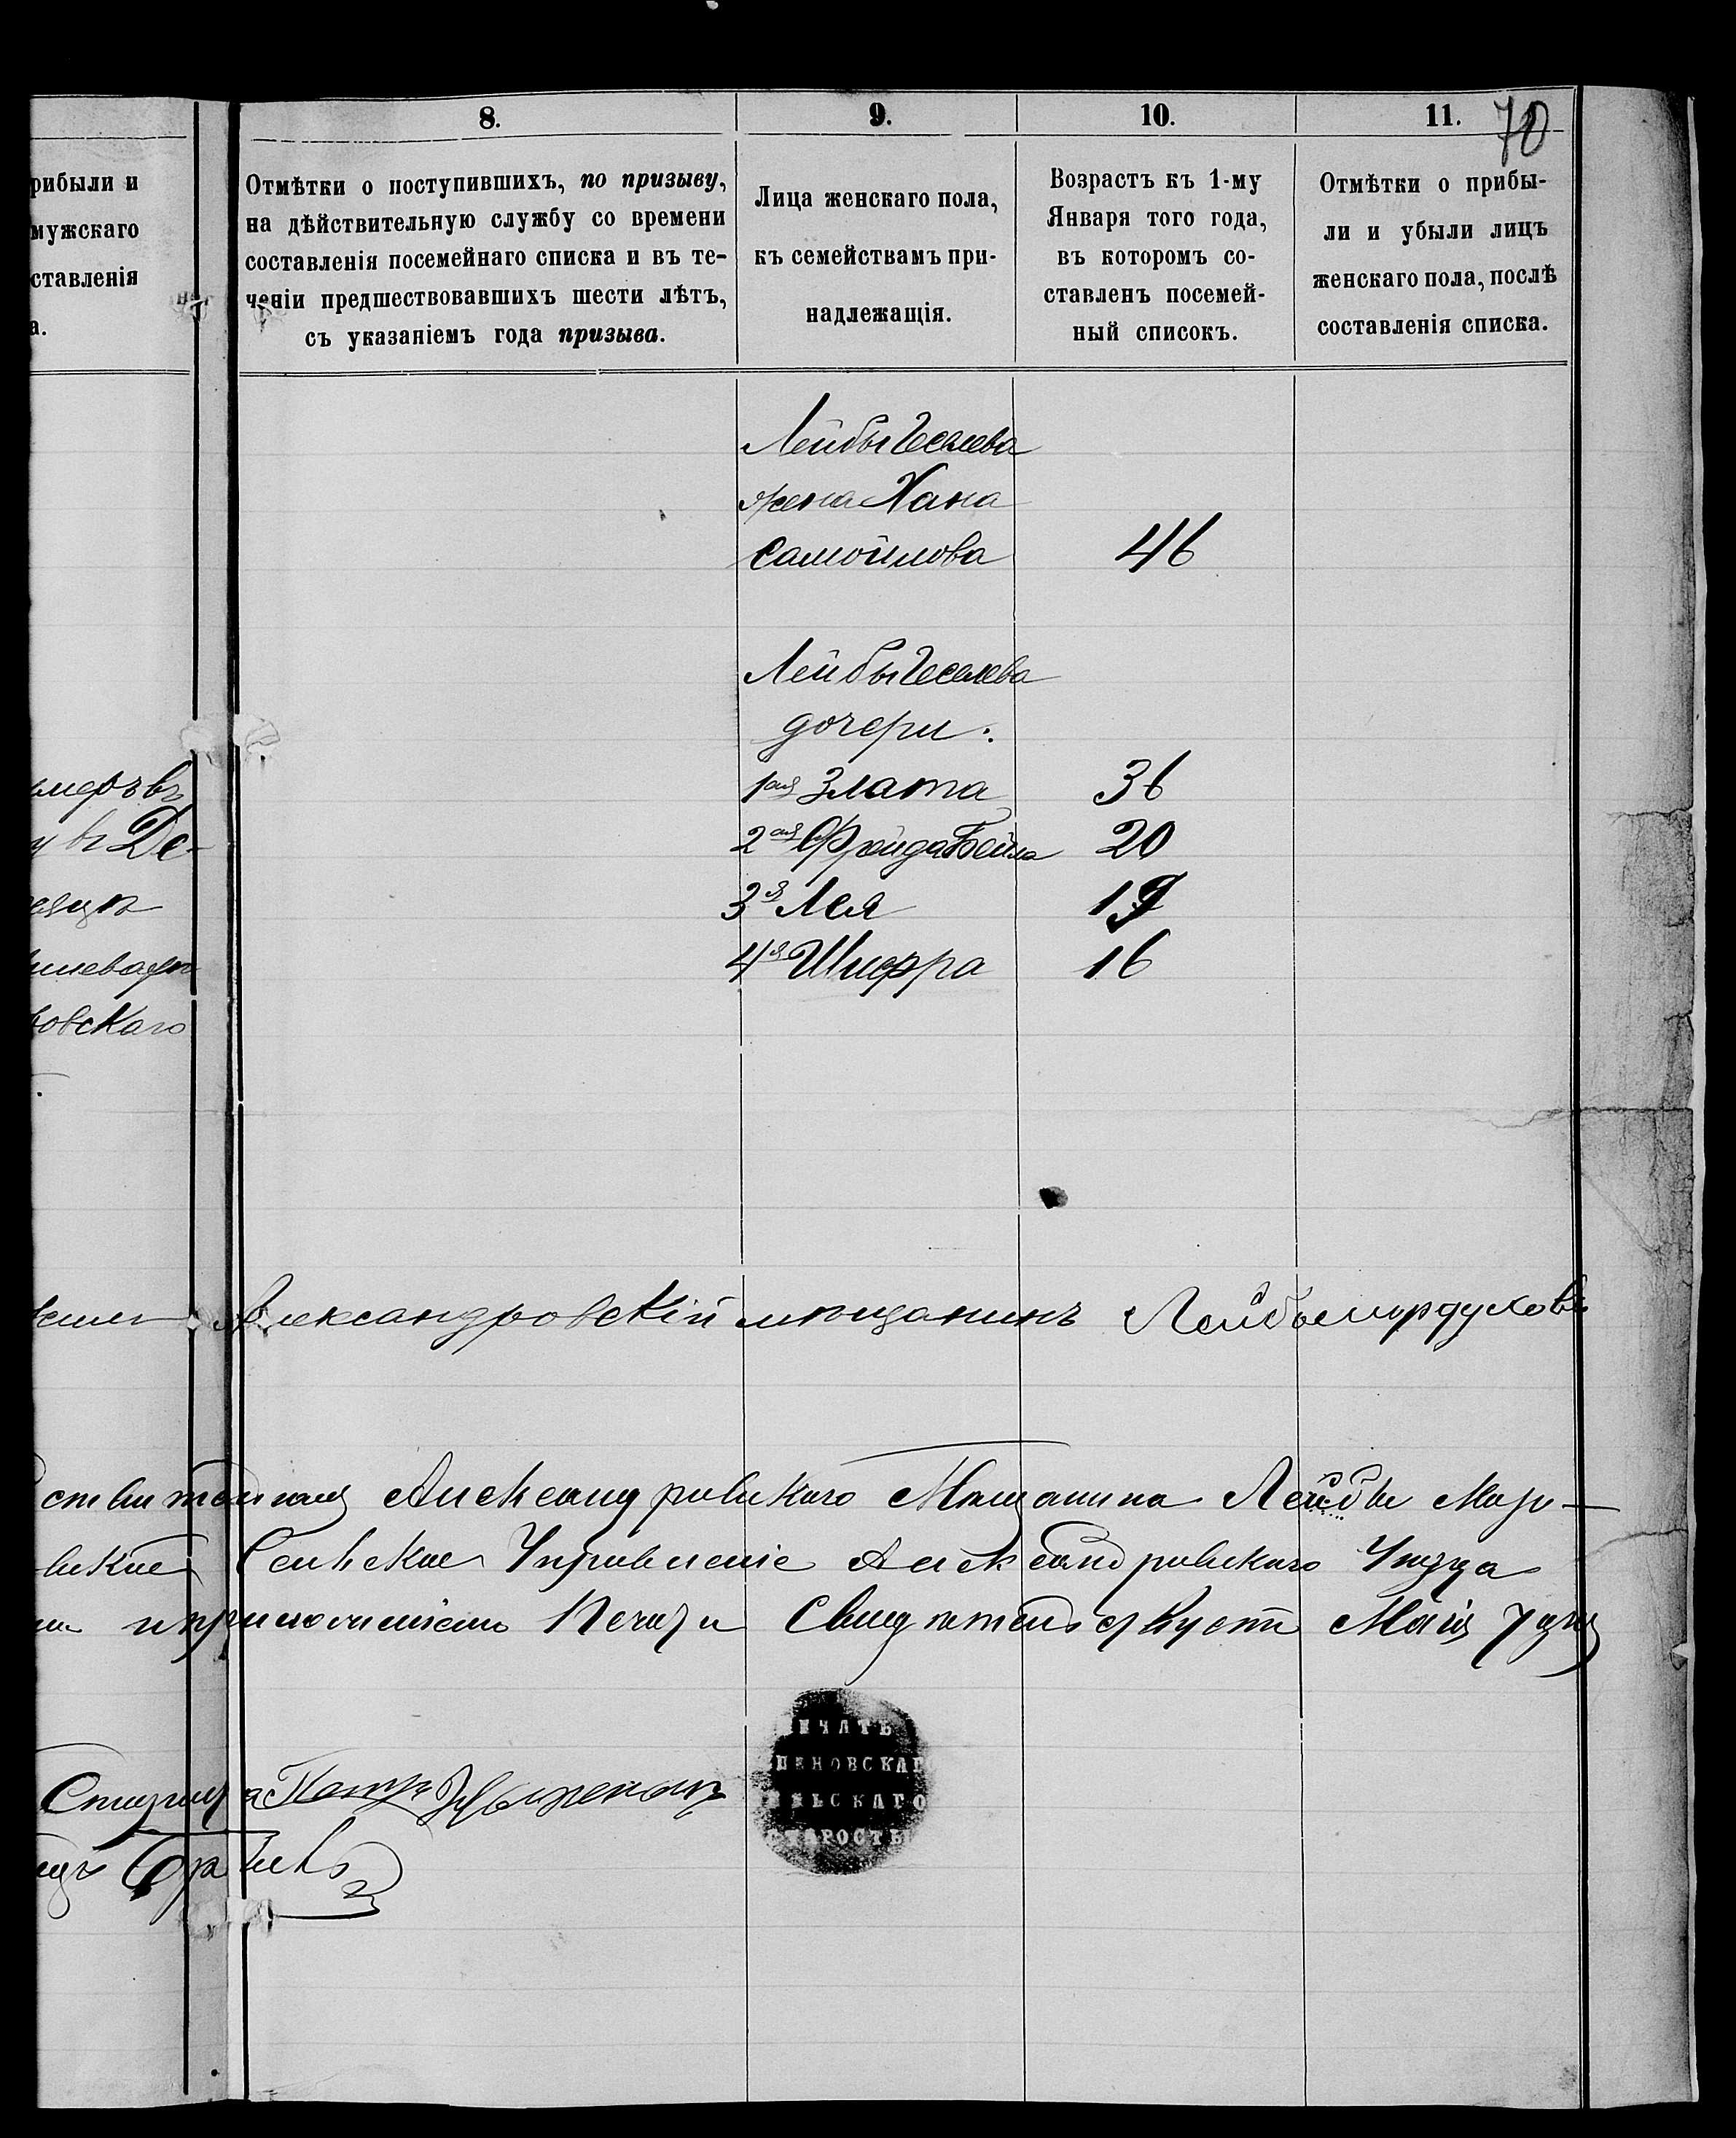 8.
9.
10.
11.
70
рибыли и
мужскаго
ставленія
а.
Отмѣтки о поступившихъ, по призыву,
на дѣйствительную службу со времени
составленія посемейнаго списка и въ те-
ченіи предшествовавшихъ шести лѣтъ,
съ указаніемъ года призыва.
Лица женскаго пола,
къ семействамъ при-
надлежащія.
Возрастъ къ 1-му
Января того года,
въ которомъ со-
ставленъ посемей-
ный список.
Отмѣтки о прибы-
ли и убыли лицъ
женскаго пола, послѣ
составленія списка.
Лейбы Геселева
жена Хана
Самойлова 46
Лейбы Геселева
дочери:
1ая Злата 36
2ая Фрейда Бейла 20
3я Лея 19
4я Шифра 16
мерѣвъ
въ Де-
овскаго
Александровскій мѣщанинъ Лейбы Мордуховъ
Александровскаго Мѣщанина Лейбы Мор-
Сельское Управленіе Александровскаго Уѣзда
и приложеніемъ Печати Свидетельствуетъ Маія 7 дня
Староста Петръ
ПЕЧАТЬ
ПЕНОВСКАГ
ЛЬСКАГО
СТАРОСТЫ